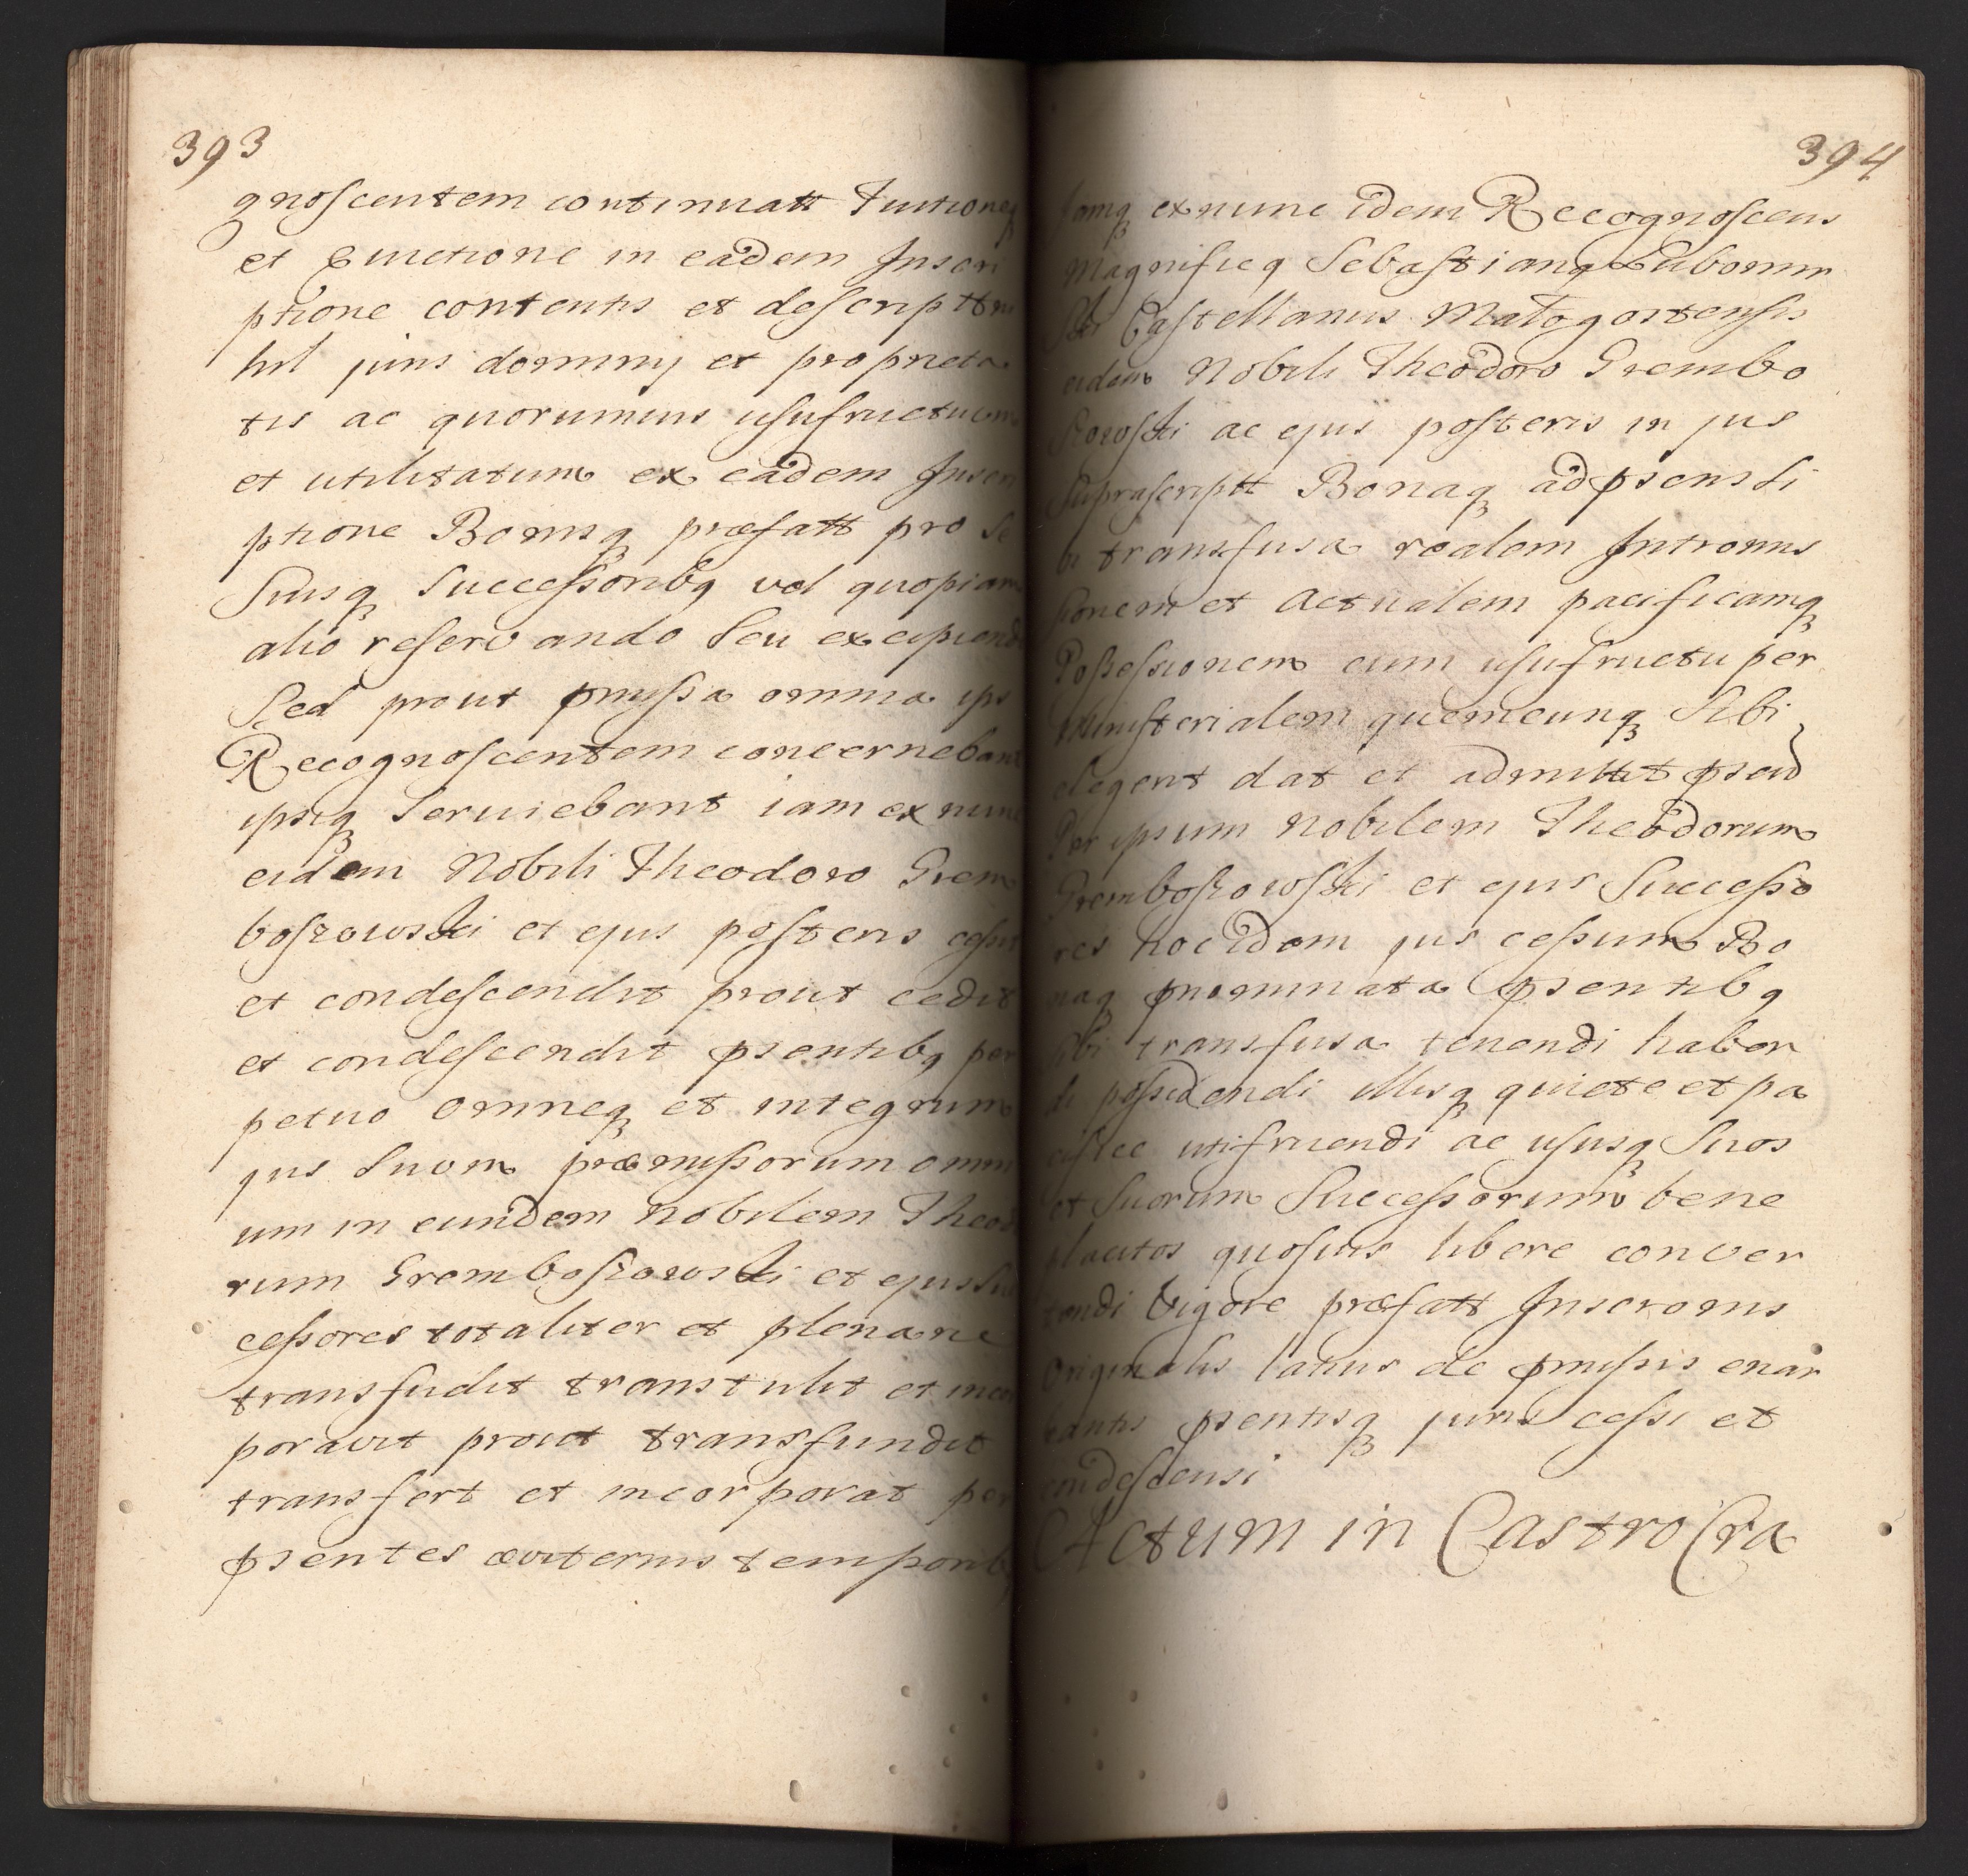 393
gnoscentem continuatt Tuitioneq
et Evictione in eadem Inscri
ptione contentis et descriptt ni
hil juris dominij et proprieta
tis ac quorumvis usufructuum
et utilitatum ex eadem Inscri
ptione Bonisq præfatt pro se
Suisq Successoribq vel quopiam
alio reservando Seu excipiendo
Sed prout pmissa omnia ips
Recognoscentem concernebant
ipsiq Serviebant iam ex nunc
eidem Nobili Theodoro Grem
boszowski et ejus posteris cessit
et condescendit prout cedit
et condescendit psentibq per
petuo Omneq et integrum
jus Suum præmissorum omni
um in eundem Nobilem Theod
rum Gremboszowski et ejus Suc
cessores totaliter et plenarie
transfudit transtulit et incor
poravit prout transfundit
transfert et incorporat per
psentes æviternis temporibq
394
Jamq ex nunc idem Recognoscens
Magnificq Sebastianq Lubomir
Ski Castellanus Małogostensis
eidem Nobili Theodoro Grembo
szowski ac ejus posteris in jus
Suprascriptt Bonaq ad psens Si
bi transfusa realem Intromis
sionem et Actualem pacificamq
Possessionem cum usufructu per
Ministerialem quemcunq Sibi
elegerit dat et admittit psend
Per ipsum Nobilem Theodorum
Gremboszowski et ejus Successo
res hoc idem jus cessum Bo
naq pnominata psentibq
Sibi transfusa tenendi haben
di possidendi illisq quiete et pa
cifice utifruendi ac ususq Suos
et Suorum Successorum bene
placitos quosvis libere conver
tendi Vigore præfatt Inscronis
Originalis latius de pmissis enar
rantis psentisq juris cessi et
condescensi
Actum in Castro Cra